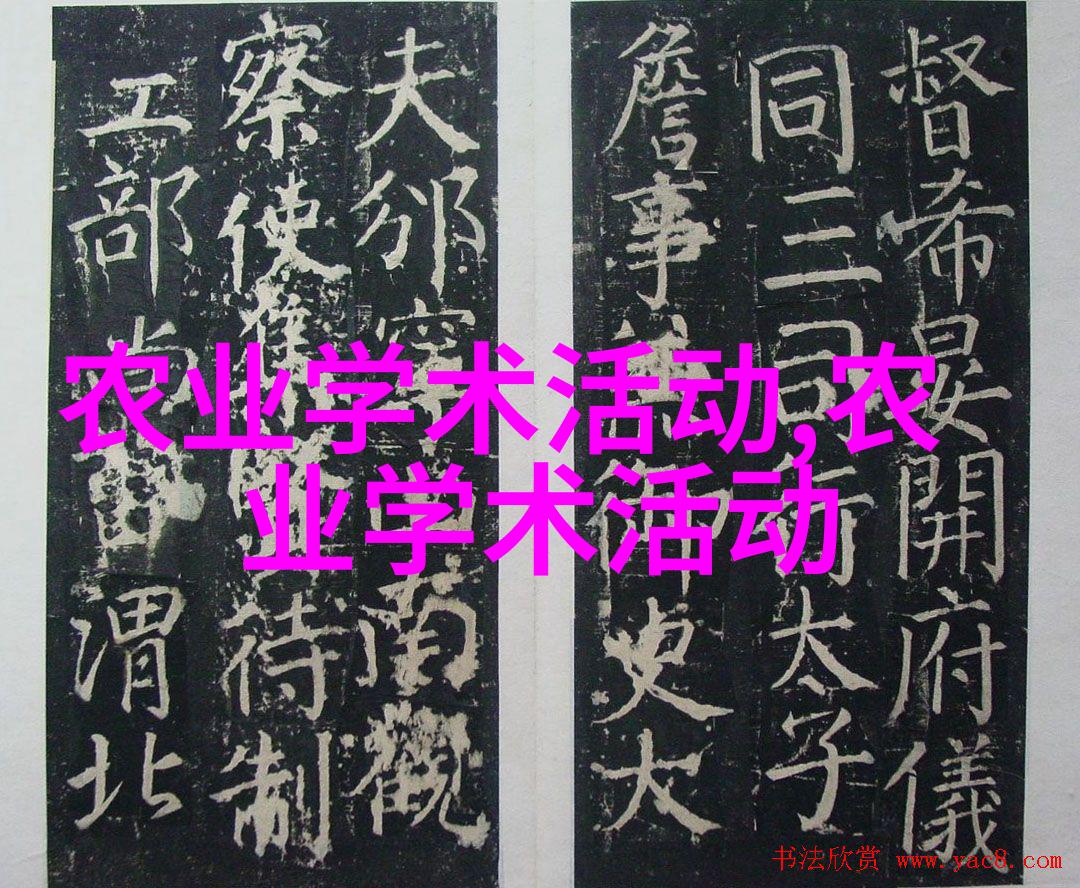 督希晏開府儀
同三司行太子
詹事兼御史大
夫邠寧南觀
察使待制
工部尚書渭北
农业学术活动,农
业学术活动
书法欣赏 www.yac8.com